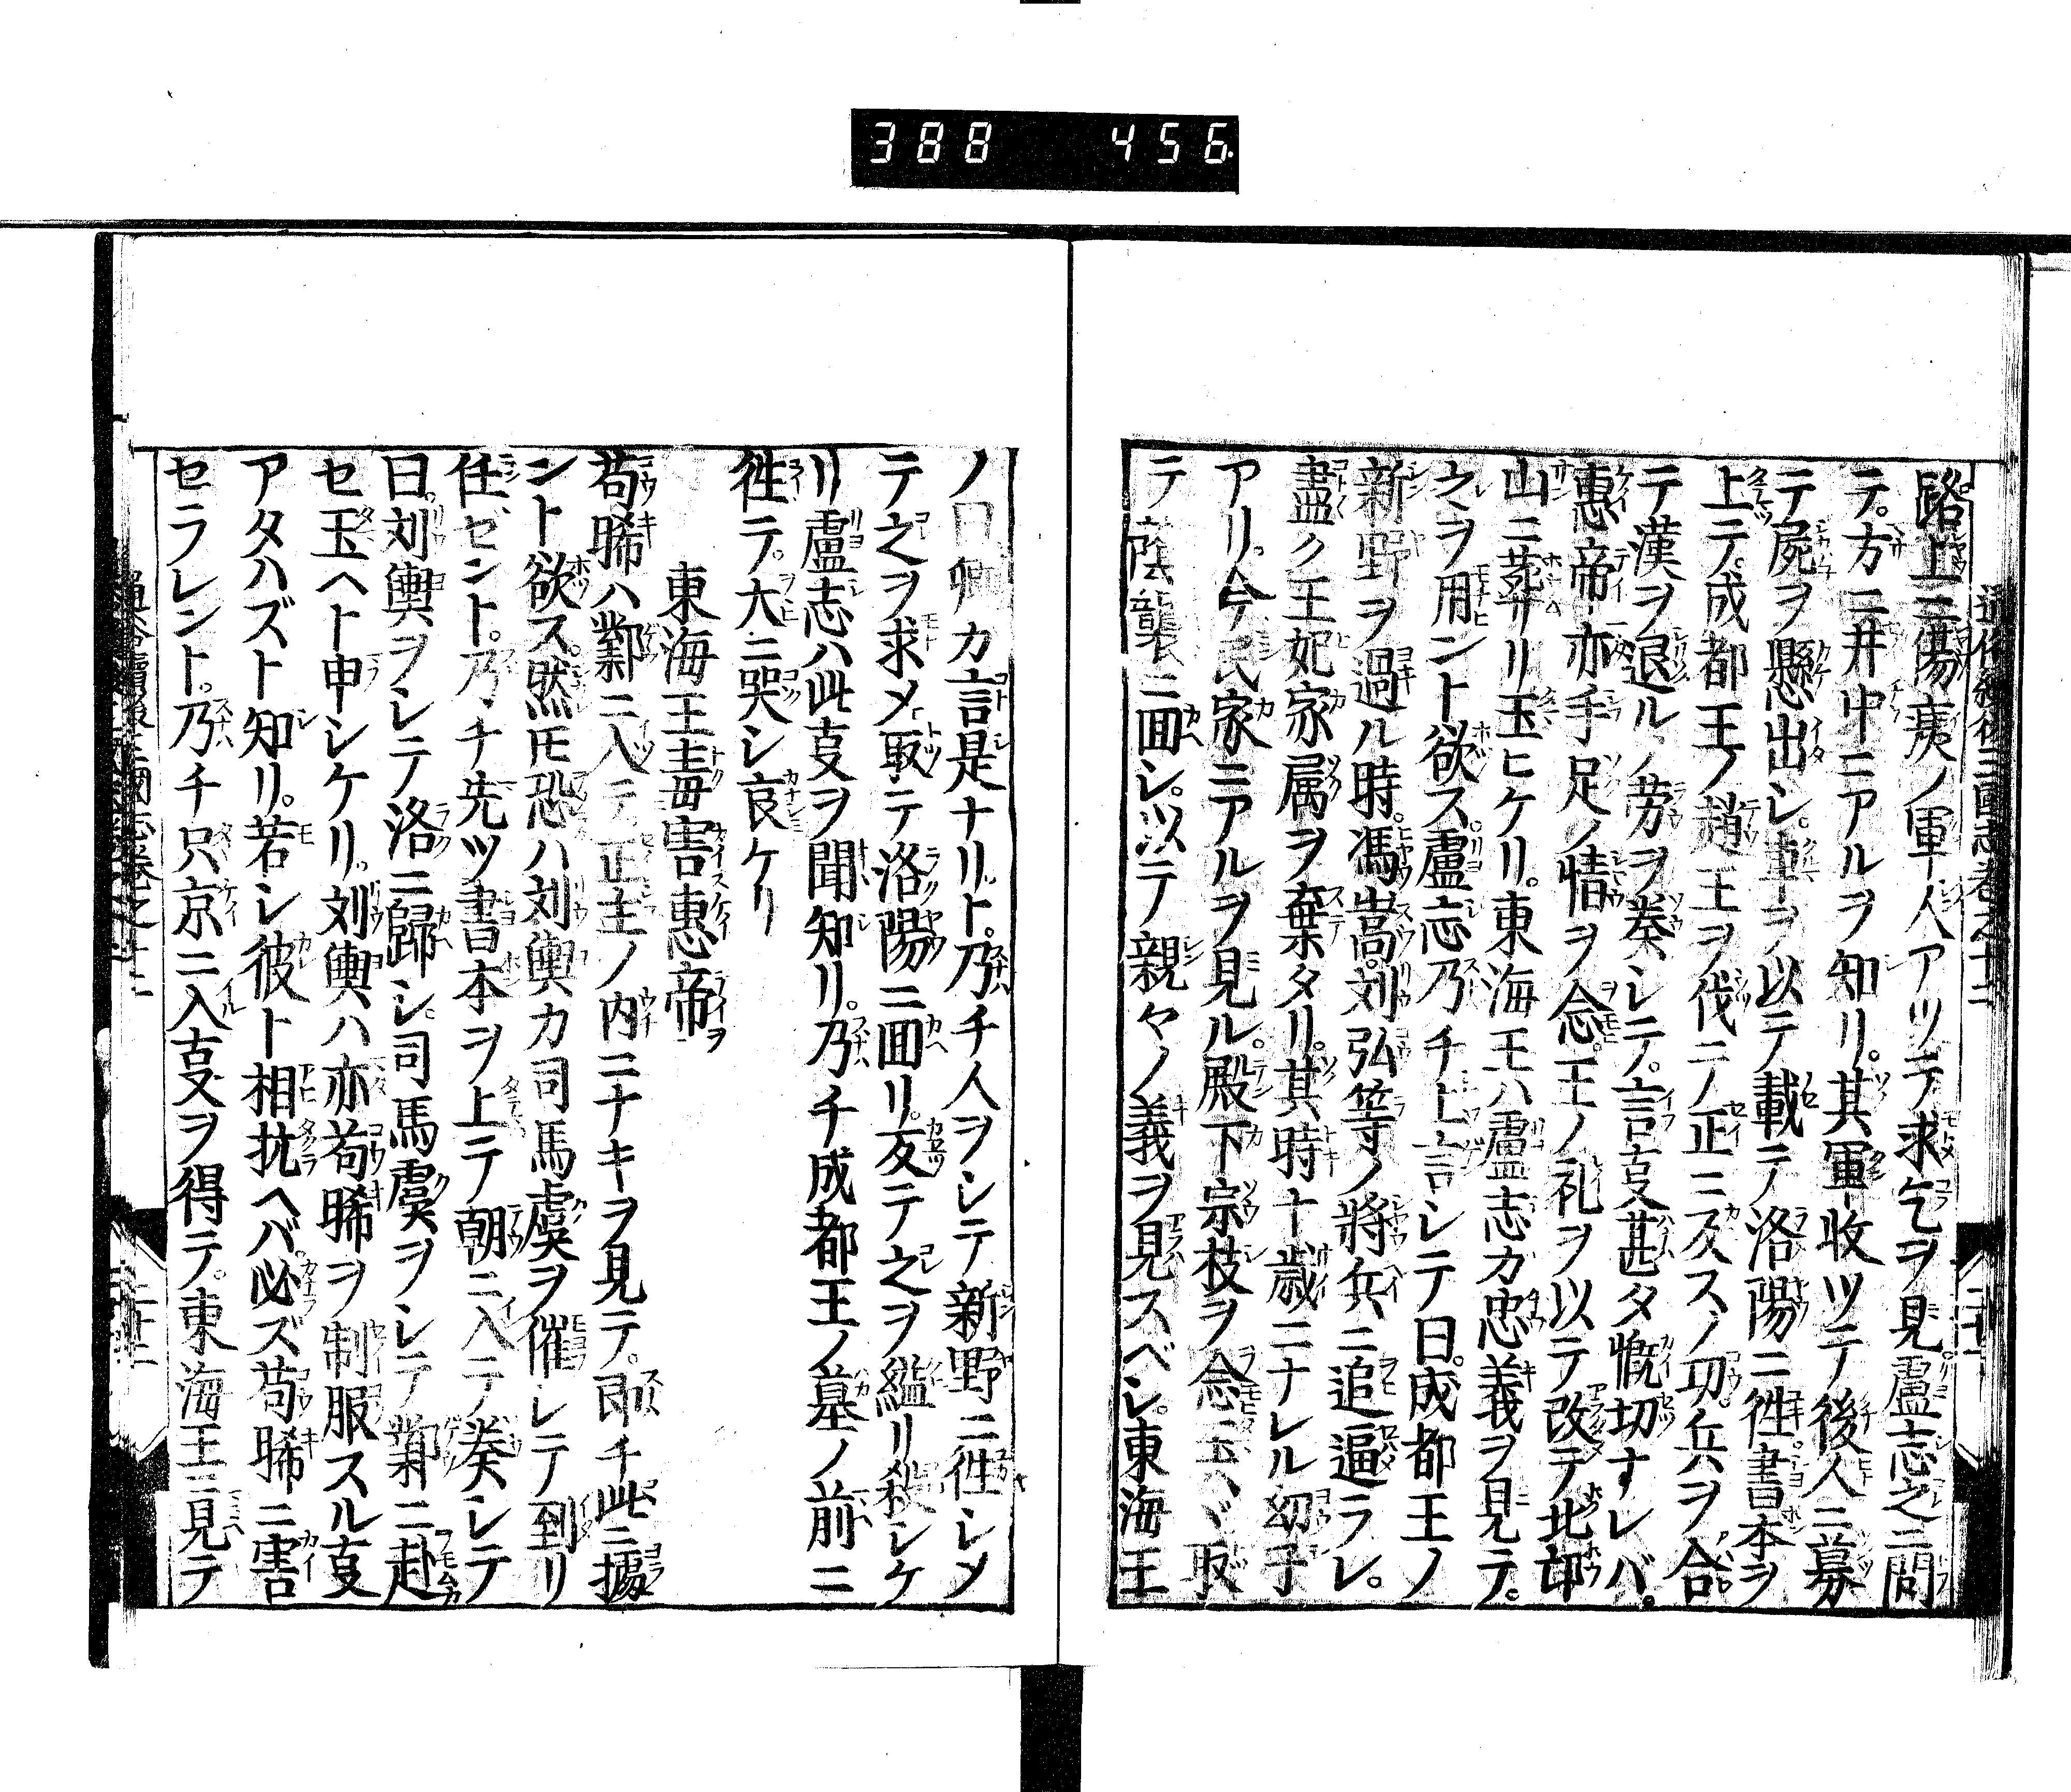 388 456
通俗續後三國志卷之十二
路上ニ傷痍ノ軍人アツテ求乞ヲ見盧志之ニ問
テ。方ニ井中ニアルヲ知リ。其軍收ツテ後人ニ募
テ屍ヲ懸出シ。車ヲ以テ載テ洛陽ニ徃。書本ヲ
上テ。成都王ノ趙王ヲ伐ニノ正ニ反スノ功。兵ヲ合
テ漢ヲ退ルノ労ヲ奏シテ。言叓甚タ慨切すレバ。
惠帝亦手足ノ情ヲ念。王ノ礼ヲ以テ改テ北邙
山ニ葬リ玉ヒケリ。東海王ハ盧志カ忠義ヲ見テ。
之ヲ用ント欲ス盧志乃チ上言シテ曰。成都王ノ
新野ヲ過ル時。馮嵩。刘弘等ノ將兵ニ追逼ラレ。
盡ク王妃家属ヲ棄タリ。其時十歳ニナレル幼子
アリ。今民家ニアルヲ見ル。殿下宗枝ヲ念玉ハヾ取
テ蔭襲ニ囬シ。以テ親々ノ義ヲ見スベシ。東海王
ノ曰卿カ言是ナリト。乃チ人ヲシテ新野ニ徃シメ
テ之ヲ求メ取テ洛陽ニ囬リ。反テ之ヲ縊リ殺シケ
リ盧志ハ此叓ヲ聞知リ。乃チ成都王ノ墓ノ前ニ
徃テ。大ニ哭シ哀ケリ
東海王毒害惠帝
苟晞ハ鄴ニ入テ正主ノ内ニナキヲ見テ。即チ此ニ據
ント欲ス然𪜈恐ハ刘輿カ司馬虞ヲ催シテ到リ
任ゼント。乃チ先ツ書本ヲ上テ朝ニ入テ奏シテ
曰。刘輿ヲシテ洛ニ歸シ。司馬虞ヲシテ鄴ニ赴
セ玉ヘト申シケリ。刘輿ハ亦苟晞ヲ制服スル叓
アタハズト知リ。若シ彼ト相抗ヘバ。必ズ苟晞ニ害
セラレント。乃チ只京ニ入叓ヲ得テ。東海王ニ見テ